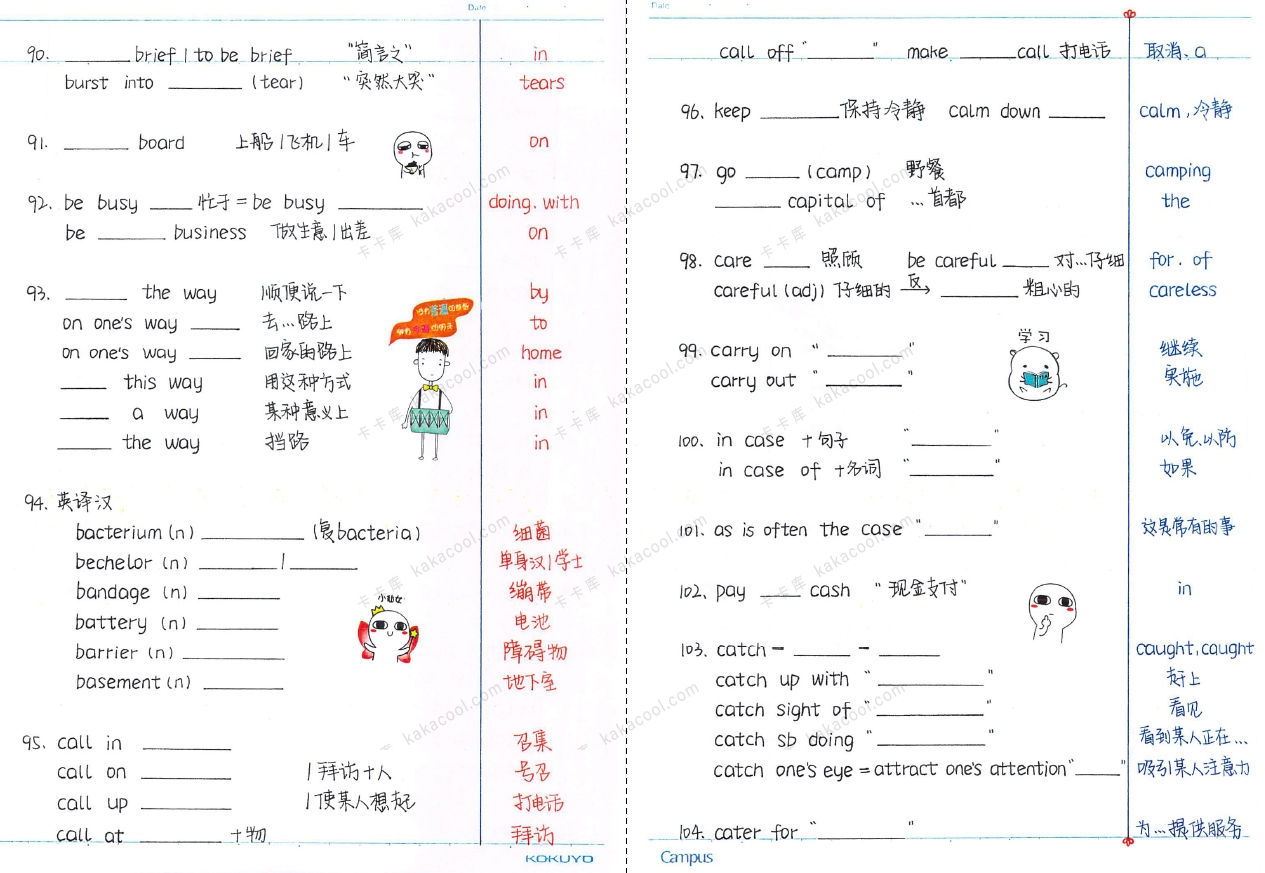 Date
90. ______ brief / to be brief "简言之" in
burst into ______ (tear) "突然大哭" tears
91. ______ board 上船/飞机/车 on
92. be busy ____ 忙于 = be busy ______ doing. with
be ______ business 做生意/出差 on
93. ______ the way 顺便说一下 by
on one's way ____ 去…路上 to
on one's way ____ 回家的路上 home
____ this way 用这种方式 in
____ a way 某种意义上 in
____ the way 挡路 in
94. 英译汉
bacterium (n) ______ (复bacteria) 细菌
bechelor (n) ______ / ______ 单身汉/学士
bandage (n) ______ 绷带
小仙女
battery (n) ______ 电池
barrier (n) ______ 障碍物
basement (n) ______ 地下室
95. call in ______ 召集
call on ______ /拜访+人 号召
call up ______ /使某人想起 打电话
call at ______ +物 拜访
KOKUYO
Date
call off "______" make ____ call 打电话 取消. a
96. keep ______ 保持冷静 calm down ____ calm, 冷静
97. go ____ (camp) 野餐 camping
______ capital of …首都 the
98. care ____ 照顾 be careful ____ 对…仔细 for. of
careful (adj) 仔细的 反→ ______ 粗心的 careless
学习
99. carry on "______" 继续
carry out "______" 实施
100. in case +句子 "______" 以免、以防
in case of +名词 "______" 如果
101. as is often the case "______" 这是常有的事
102. pay ____ cash "现金支付" in
103. catch - ____ - ____ caught, caught
catch up with "______" 赶上
catch sight of "______" 看见
catch sb doing "______" 看到某人正在…
catch one's eye = attract one's attention "____" 吸引某人注意力
104. cater for "______" 为…提供服务
Campus
卡卡库 kakacool.com